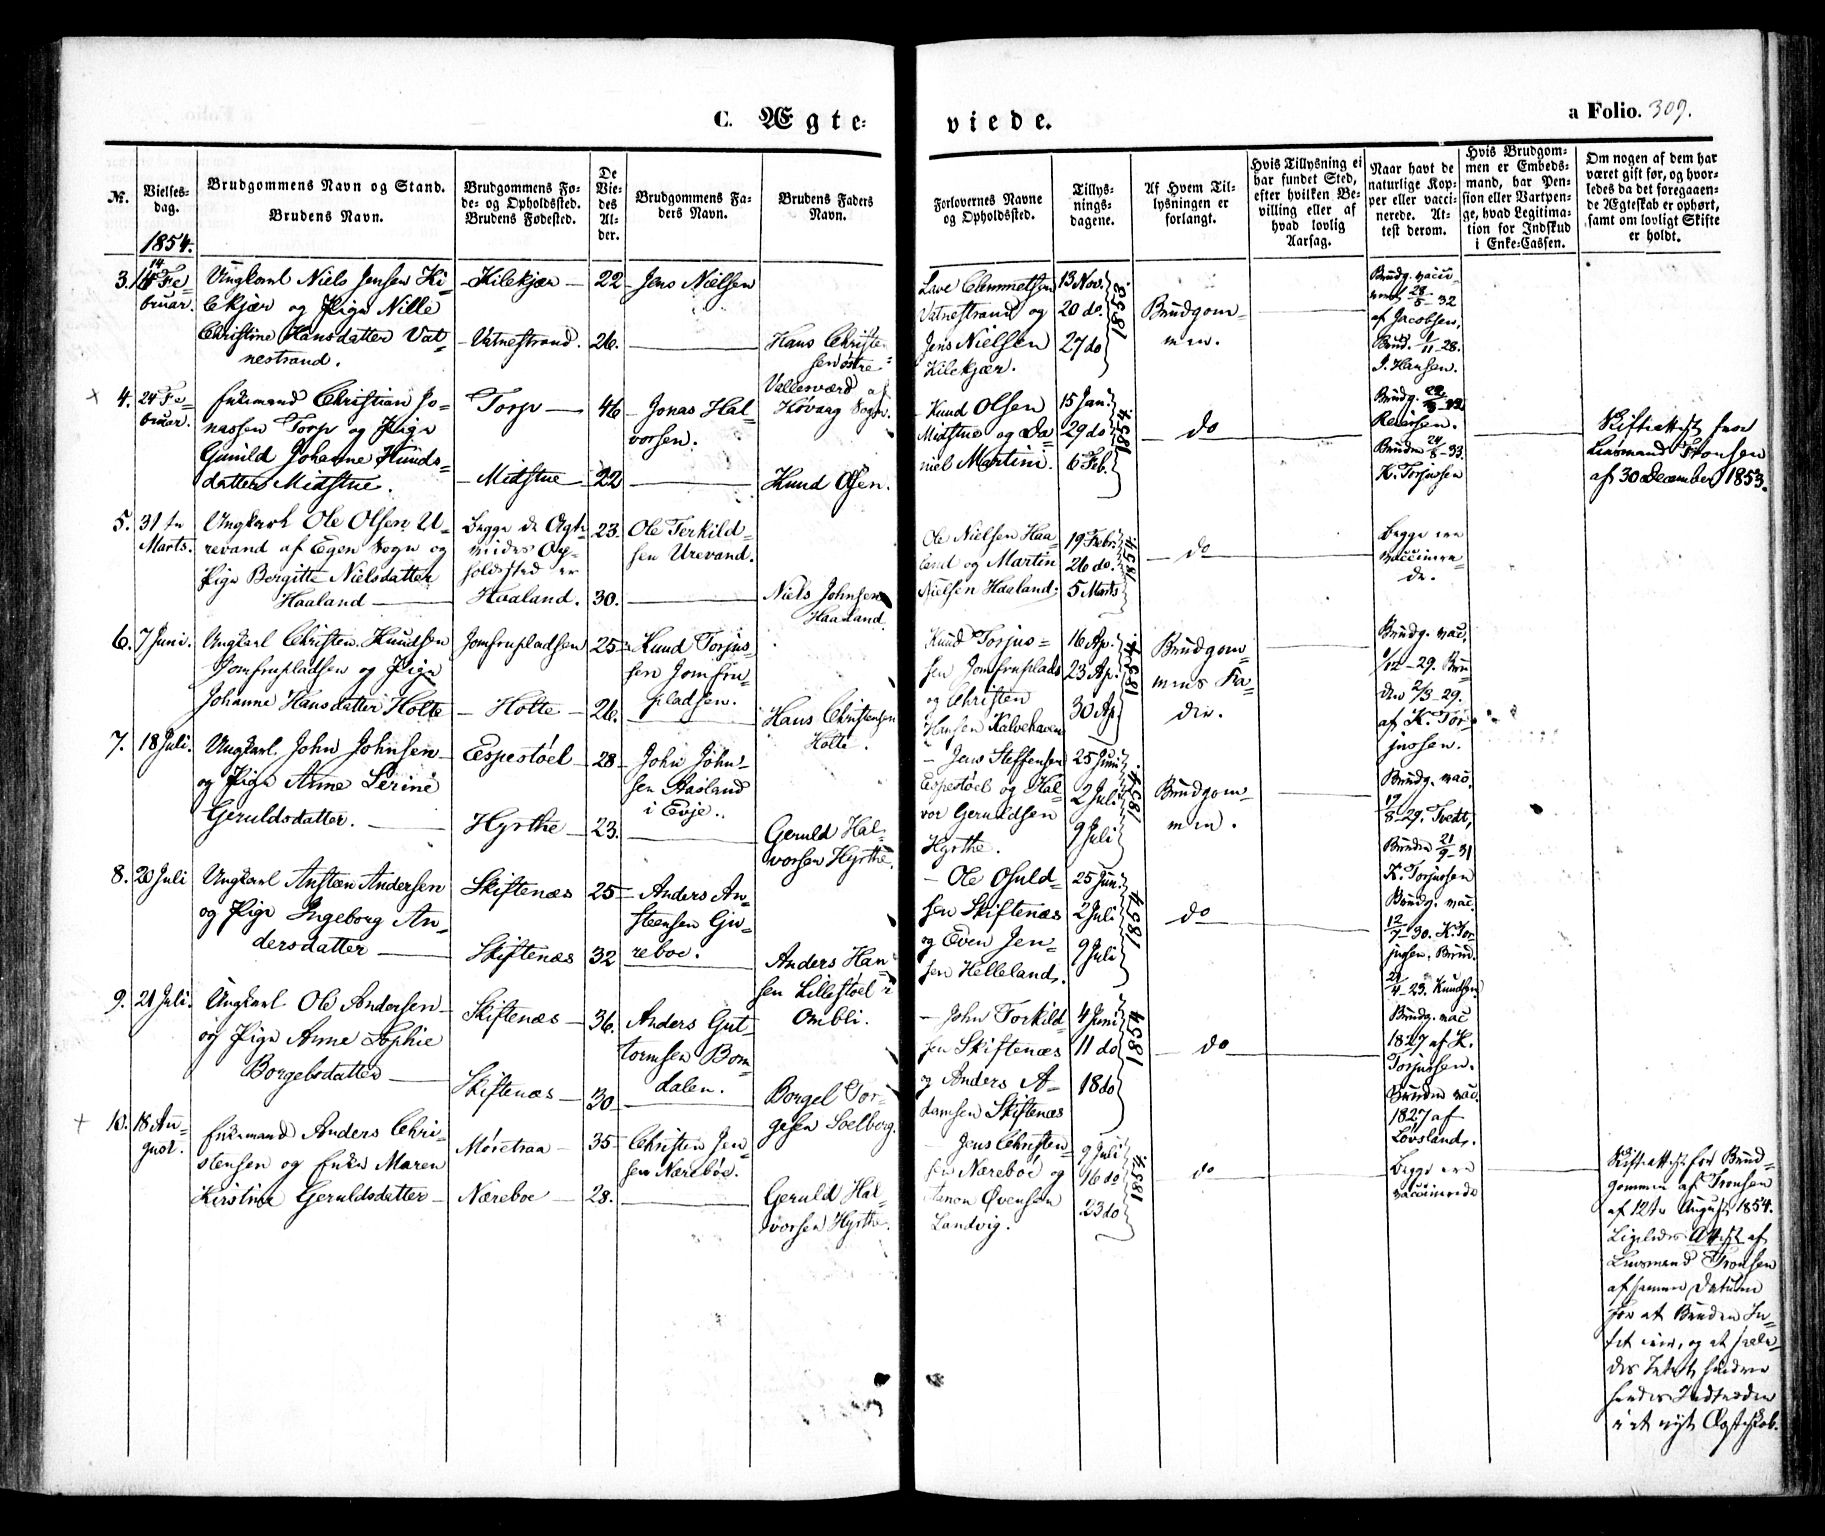 C. Ægte-
viede.
a Folio. 309.
№.
Vielses-
dag.
Brudgommens Navn og Stand.
Brudens Navn.
Brudgommens Fø-
de- og Opholdsted.
Brudens Fødested.
De
Vie-
des
Al-
der.
Brudgommens Fa-
ders Navn.
Brudens Faders
Navn.
Forlovernes Navne
og Opholdssted.
Tillys-
nings-
dagene.
Af Hvem Til-
lysningen er
forlangt.
Hvis Tillysning ei
har fundet Sted,
efter hvilken Be-
villing eller af
hvad lovlig
Aarsag.
Naar havt de
naturlige Kop-
per eller vacci-
nerede. At-
test derom.
Hvis Brudgom-
men er Embeds-
mand, har Pen-
sion eller Vartpen-
ge, hvad Legitima-
tion for Indskud
i Enke-Cassen.
Om nogen af dem har
været gift før, og hvor-
ledes da det foregaaen-
de Ægteskab er ophørt,
samt om lovligt Skifte
er holdt.
1854.
3. 14 Fe-
bruar.
Ungkarl Niels Jensen Ki-
lekjær og Pige Nille
Christine Hansdatter Vat-
nestrand.
Kilekjær
Vatnestrand.
22
26.
Jens Nielsen
Hans Christen-
sen østre
Vallesværd af
Høvaag Sogn.
Lave Clemmetsen
Vatnestrand og
Jens Nielsen
Kilekjær.
13 Nov.
20 do
27 do
1853.
Brudgom-
men.
Brudg. vacci-
neret 28/5-32
af Jacobsen,
Brud. 1/11-28.
J. Hansen.
4. 24 Fe-
bruar.
Enkemand Christian Jo-
nassen Torp og Pige
Gunild Johanne Knuds-
datter Midstue.
Torp
Midstue
46
22
Jonas Hal-
vorsen.
Knud Olsen.
Knud Olsen
Midstue og Da-
niel Martin.
15 Jan.
29 do
6 Feb.
1854.
do
Brudg.
Reiersen.
Bruden 24/8-33.
K. Torjussen
Skifteattest fra
Lensmand Tronsen
af 30 December 1853.
5. 31te
Marts.
Ungkarl Ole Olsen U-
revand af Egen Sogn og
Pige Bergitte Nielsdatter
Haaland
Begge de Ægte-
viedes Op-
holdssted er
Haaland.
23.
30.
Ole Terkild-
sen Urevand.
Niels Johnsen
Haaland.
Ole Nielsen Haa-
land og Martin
Nielsen Haaland.
19 Febr.
26 do.
5 Marts
1854.
do
Begge ere
vaccinere-
de.
6. 7 Juni.
Ungkarl Christen Knudsen
Jomfrupladsen og Pige
Johanne Hansdatter Holte
Jomfrupladsen
Holte
25
26.
Knud Torjus-
sen Jomfru-
pladsen.
Hans Christensen
Holte.
Knud Torjus-
sen Jomfruplads
og Christen
Hansen Kalvehaven
16 Ap.
23 Ap.
30 Ap.
1854.
Brudgom-
mens Fa-
der.
Brudg. vac.
1/12-29. Bru-
den 2/8 29.
af K. Tor-
jussen.
7. 18 Juli.
Ungkarl John Johnsen
og Pige Anne Serine
Geruldsdatter.
Espestøel
Hyrthe
28
23.
John John-
sen Aasland
i Evje.
Geruld Hal-
vorsen Hyrthe.
Jens Steffensen
Espestøel og Hal-
vor Geruldsen
Hyrthe.
25 Juni
2 Juli
9 Juli
1854.
Brudgom-
men.
Brudg. vac.
19/8-29. Tvedt,
Bruden 21/9-31
K. Torjussen
8. 20 Juli
Ungkarl Ansteen Andersen
og Pige Ingeborg An-
dersdatter
Skiftenæs
Skiftenæs
25
32
Anders An-
steensen Gju-
reboe.
Anders Han-
sen Lillestøel i
Ombli.
Ole Osuld-
sen Skiftenæs
og Even Jen-
sen Helleland.
25 Jun.
2 Juli
9 Juli
1854.
do
Brudg. vac.
12/7-30. K. Tor-
jusen. Brud.
21/4-23. Knudsen
9. 21 Juli.
Ungkarl Ole Andersen
og Pige Anne Sophie
Borgelsdatter
Skiftenæs
Skiftenæs
36.
30
Anders Gut-
tormsen Bom-
dalen.
Borgel Tor-
gesen Soelborg.
John Torkild-
sen Skiftenæs
og Anders A-
damsen Skiftenæs
4 Juni
11 do
18 do
1854
do
Brudg. vac
1827 af K.
Torjussen.
Bruden vac.
1827 af
Løvsland.
10. 18 Au-
gust.
Enkemand Anders Chri-
stensen og Enke Maren
Kirstine Geruldsdatter
Møretraa
Næreboe
35
28.
Christen Jen-
sen Næreboe.
Geruld Hal-
vorsen Hyrthe.
Jens Christen-
sen Næreboe og
Øvensen
Landvig.
9 Juli
16 do
23 do
1854.
do
Begge ere
vaccinerede
Skifteattest for Brud-
gommen af Tronsen
af 12te August 1854.
Ligeledes Attest af
Lensmand Tronsen
af samme Datum
for at Bruden In-
tet eier, og at saale-
des Intet hindrer
hendes Indtræden
i et nyt Ægteskab.